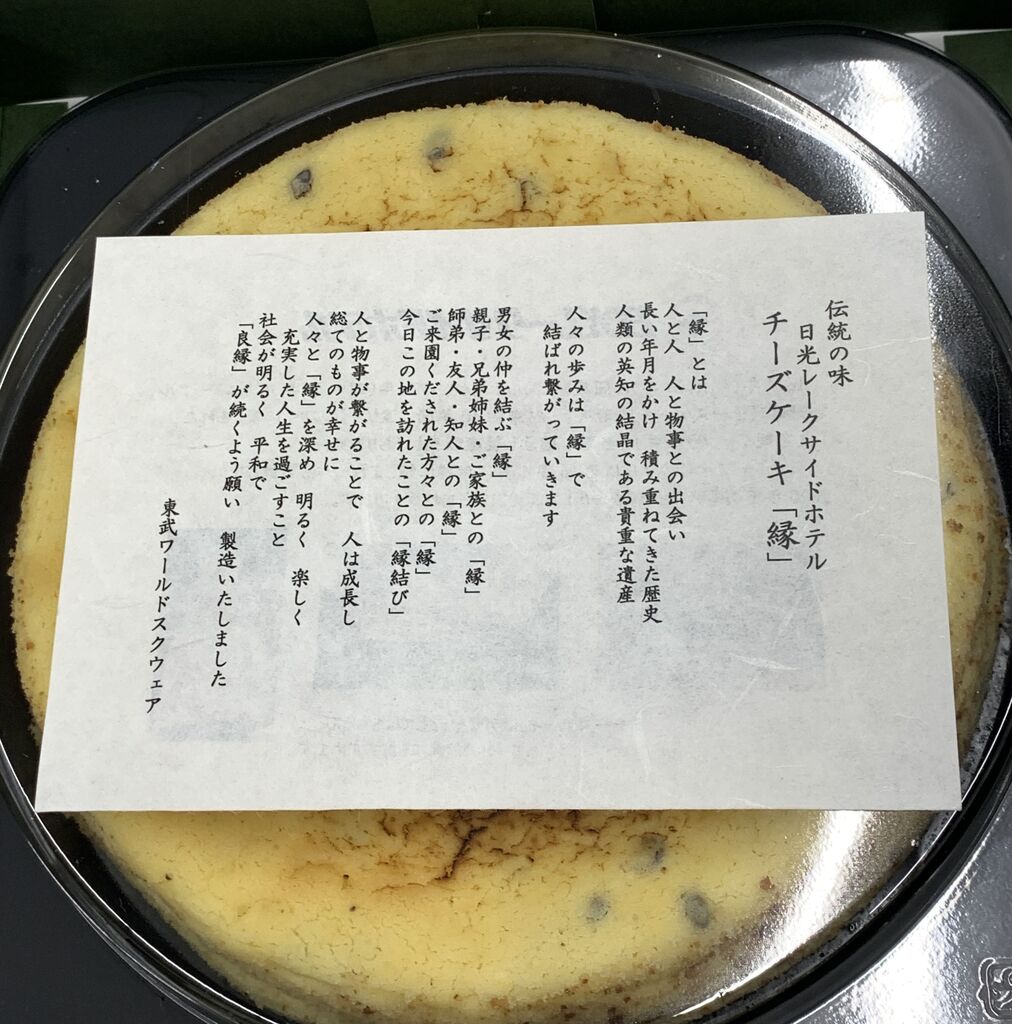 伝統の味
日光レークサイドホテル
チーズケーキ「縁」
「縁」とは
人と人　人と物事との出会い
長い年月をかけ　積み重ねてきた歴史
人類の英知の結晶である貴重な遺産
人々の歩みは「縁」で
結ばれ繋がっていきます
男女の仲を結ぶ「縁」
親子・兄弟姉妹・ご家族との「縁」
師弟・友人・知人との「縁」
ご来園くだされた方々との「縁」
今日この地を訪れたことの「縁結び」
人と物事が繋がることで　人は成長し
総てのものが幸せに
人々と「縁」を深め　明るく　楽しく
充実した人生を過ごすこと
社会が明るく　平和で
「良縁」が続くよう願い　製造いたしました
東武ワールドスクウェア